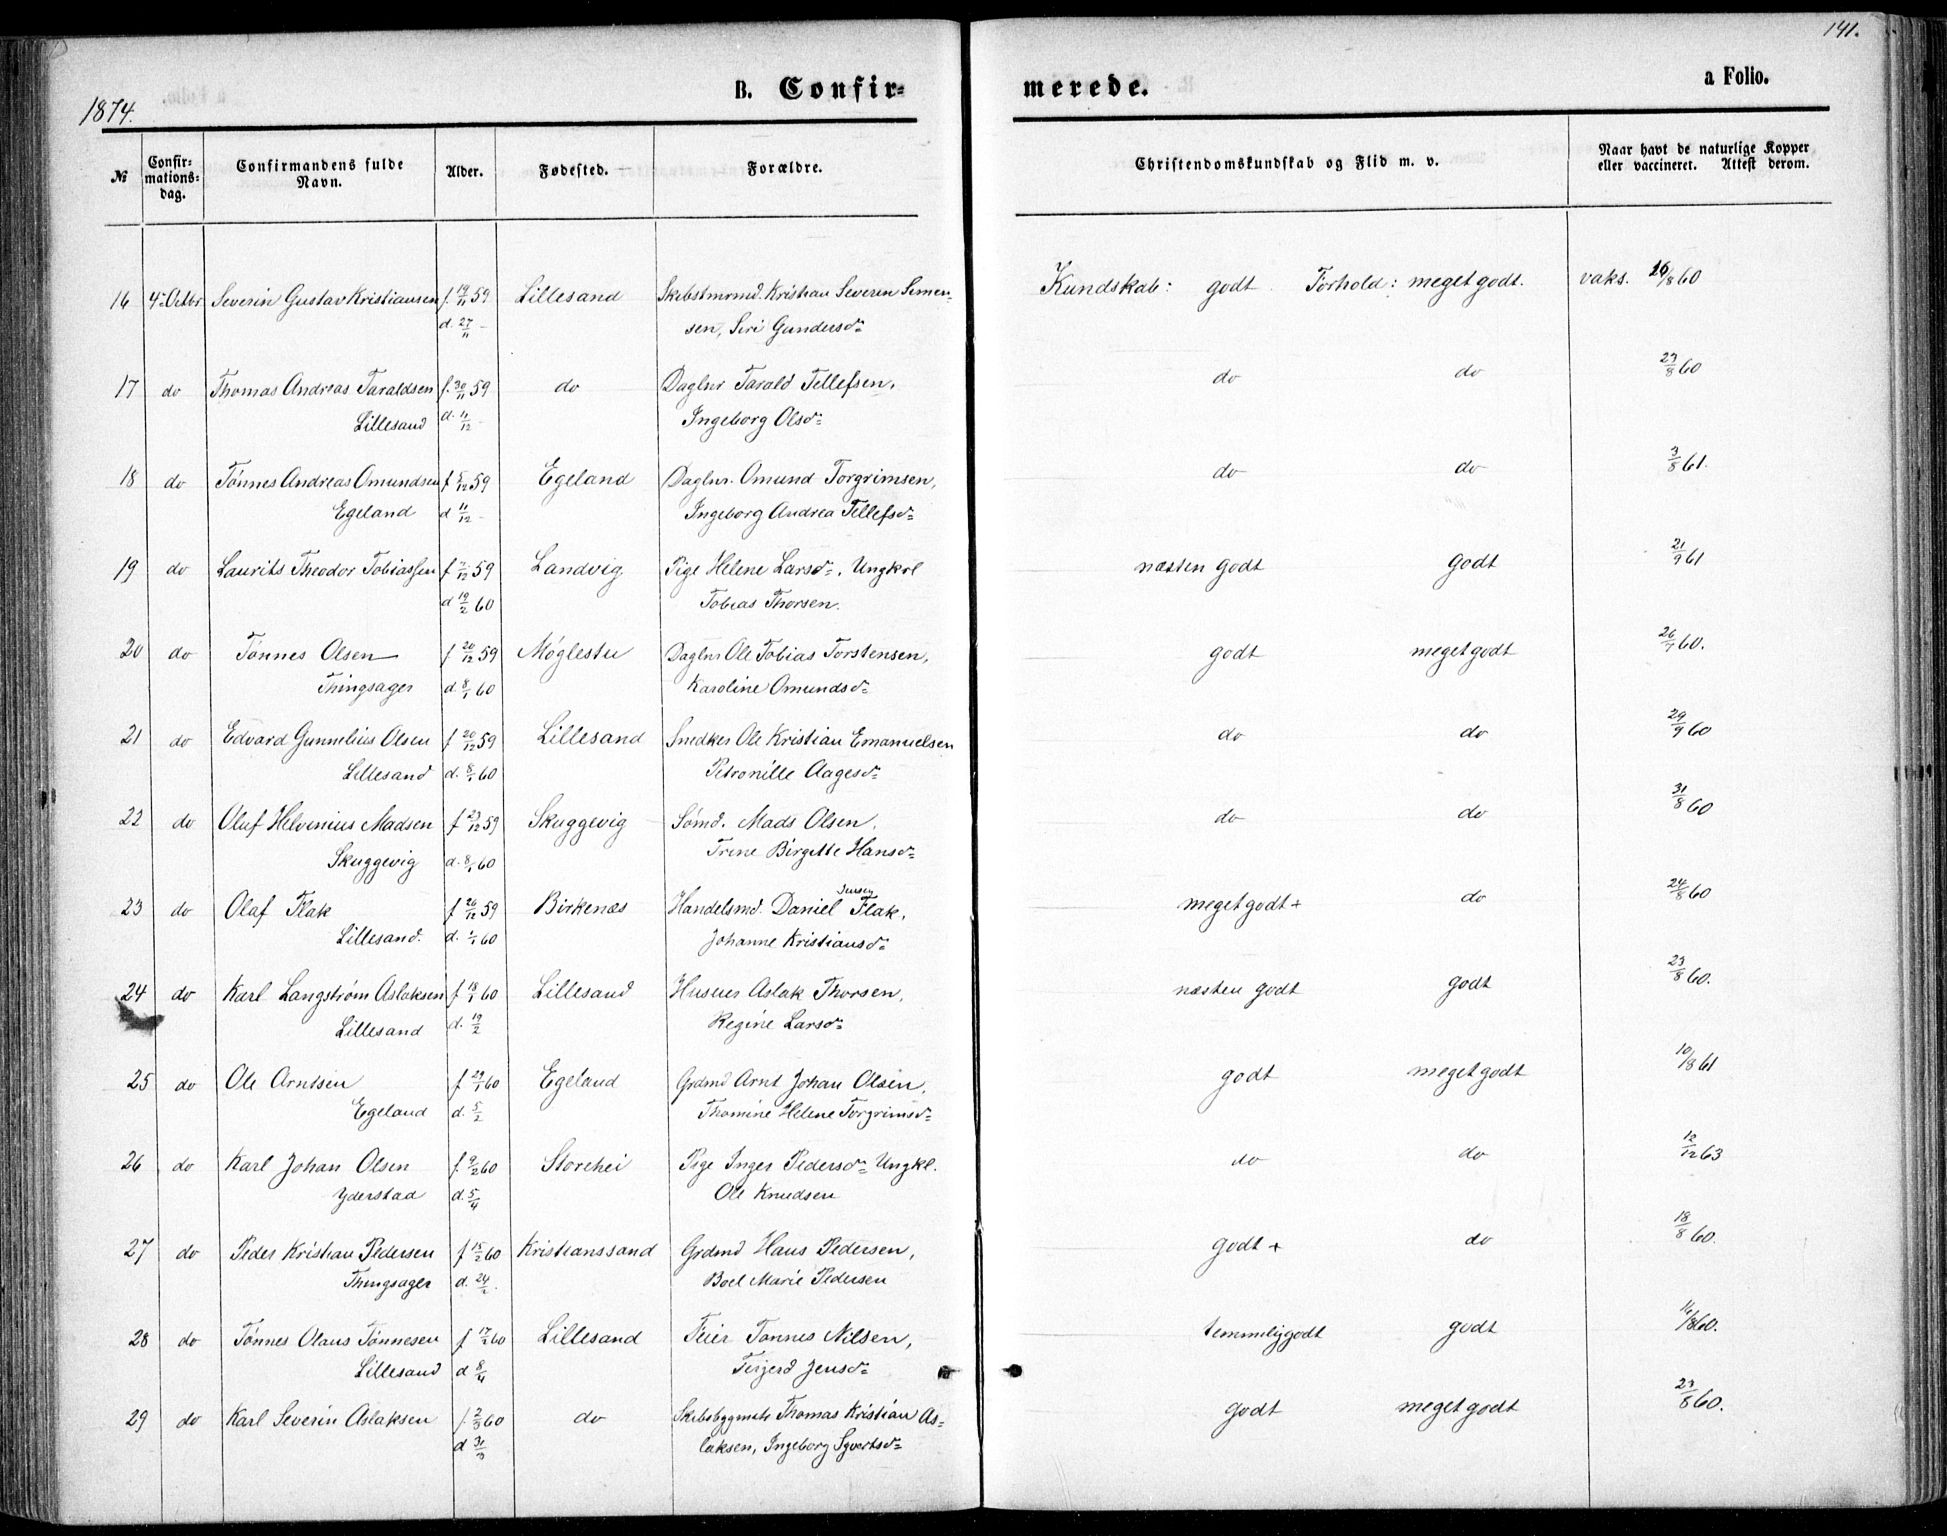 141.
1874.
B. Confir-
merede.
a Folio.
№ Confir-mations-dag. Confirmandens fulde Navn. Alder. Fødested. Forældre. Christendomskundskab og Flid m. v. Naar havt de naturlige Kopper eller vaccineret. Attest derom.
16 4de Octbr Severin Gustav Kristiansen f. 19/11 59 Lillesand Skibstmrmd. Kristian Severin Simen- Kundskab: godt Forhold: meget godt. vaks. 26/8 60
d. 27/11 - sen, Siri Gundersd=
17 do Thomas Andreas Taraldsen f. 30/11 59 do Daglnr Tarald Tellefsen, do do 23/8 60
Lillesand d. 11/12 - Ingeborg Olsd=
18 do Tønnes Andreas Omundsen f 5/12 59 Egeland Daglnr. Omund Torgrimsen, do do 3/8 61.
Egeland d 11/12 - Ingeborg Andrea Tellefsd=
19 do Laurits Theodor Tobiassen f 7/12 59 Landvig Pige Helene Larsd=, Ungkrl næsten godt godt 21/9 61
d 19/2 60 Tobias Thorsen.
20 do Tønnes Olsen f 20/12 59 Møglestu Daglnr Ole Tobias Torstensen, godt meget godt 26/7 60.
Thingsager d. 8/1 60 Karoline Omundsd=
21 do Edvard Gunnelius Olsen f 20/12 59 Lillesand Snedker Ole Kristian Emanuelsen do do 29/9 60
Lillesand d. 8/1 60 Petronille Aagesd=
22 do Oluf Helvinius Madsen f 23/12 59 Skuggevig Sømd. Mads Olsen, do do 31/8 60
Skuggevig d. 8/1 60 Trine Birgitte Hansd=
23 do Olaf Flak f 26/12 59 Birkenæs Handelsmd. Daniel Jensen Flak, meget godt + do 24/8 60
Lillesand. d. 1/1 60 Johanne Kristiansd=
24 do Karl Langstrøm Aslaksen f 18/1 60 Lillesand Huseier Aslak Thorsen, næsten godt godt 23/8 60.
Lillesand d. 19/2 Regine Larsd=
25 do Ole Arntsen f 29/1 60 Egeland Grdmd Arnt Johan Olsen, godt meget godt 10/8 61
Egeland d. 5/2 Thomine Helene Torgrimsd=
26 do Karl Johan Olsen f. 9/2 60 Storehei Pige Inger Pedersd= Ungkl. do do 12/12 63
Yderstad d. 5/4 Ole Knudsen
27 do Peder Kristian Pedersen f 15/2 60 Kristianssand Grdmd Hans Pedersen, godt + do 18/8 60.
Thingsager d. 24/2. Boel Marie Pedersen
28 do Tønnes Olaus Tønnesen f 17/2 60 Lillesand Feier Tønnes Nilsen, temmelig godt godt 14/8 60.
Lillesand d 8/4 Terjerd Jensd=
29 do Karl Severin Aslaksen f 2/3 60 do Skibsbygmstr Thomas Kristian As- godt meget godt 23/8 60.
d 31/3 laksen, Ingeborg Sjvertsd=